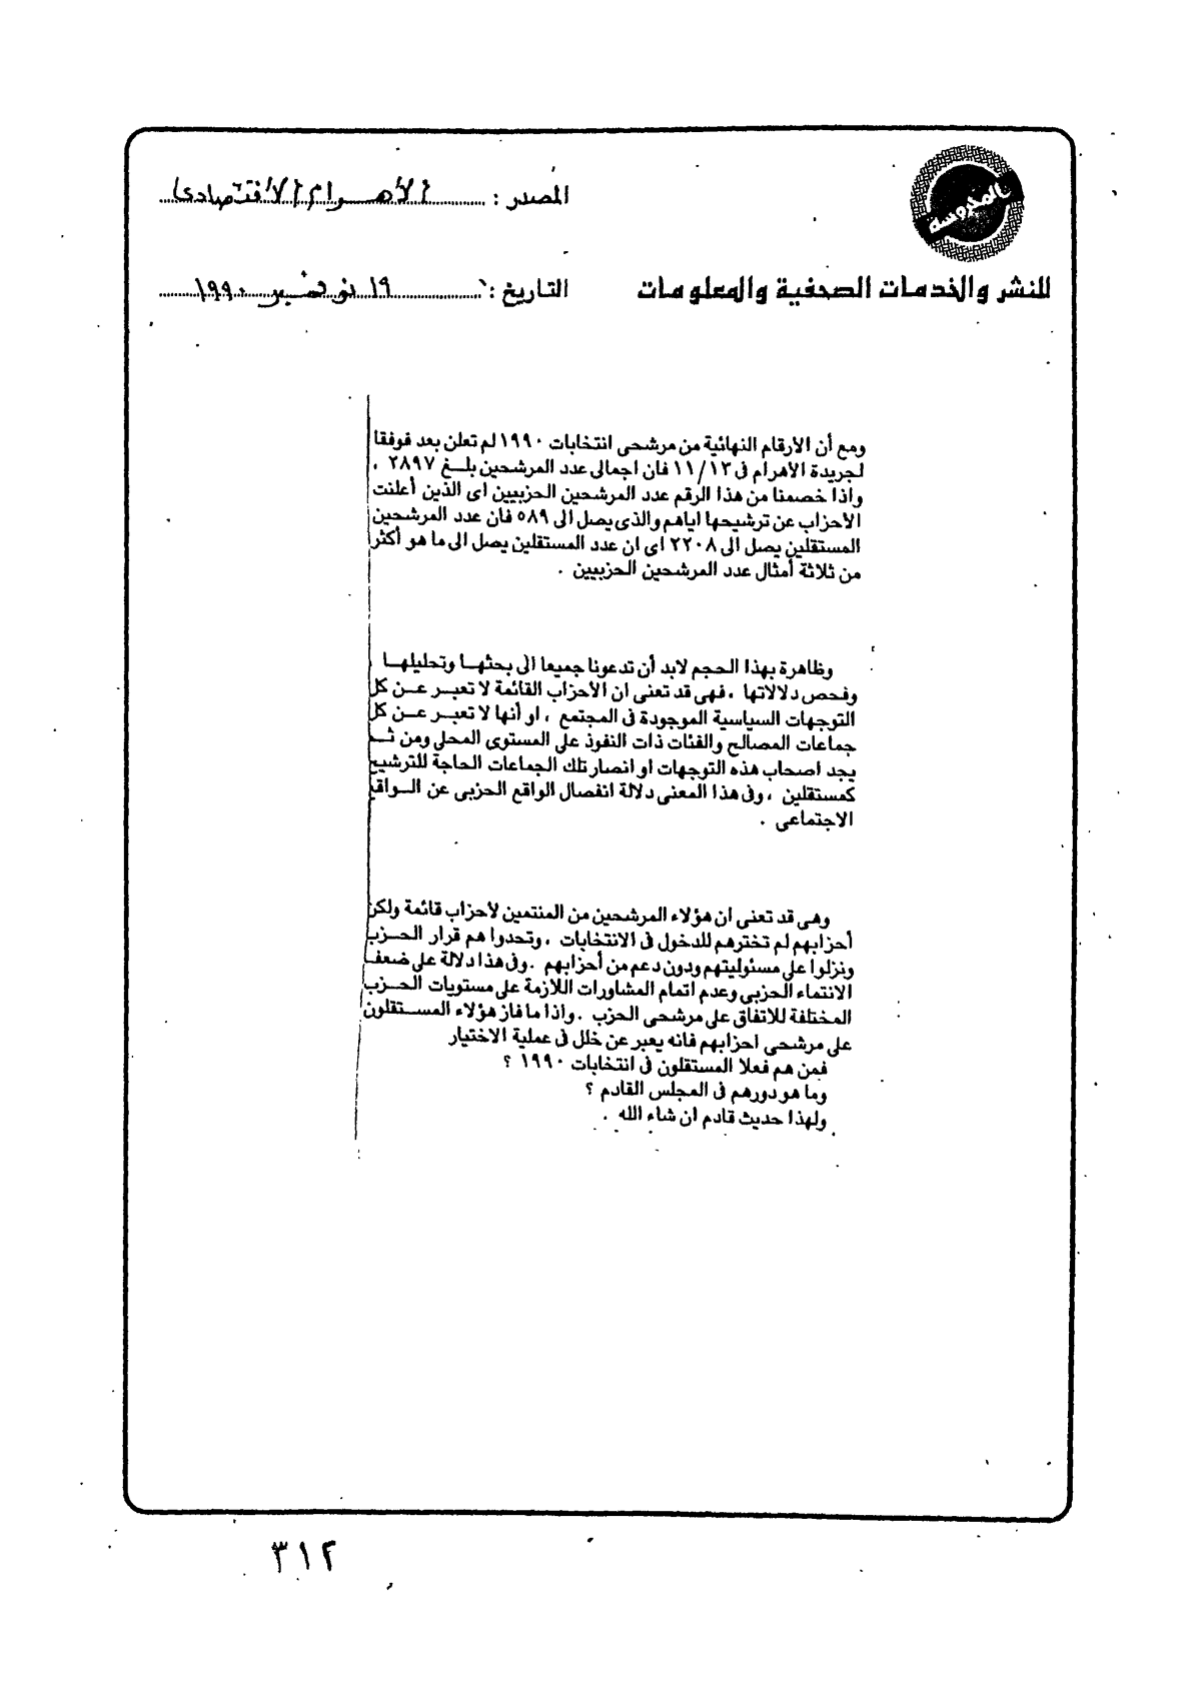 المحروسة
المصدر : الأهرام الاقتصادى
للنشر والخدمات الصحفية والمعلومات
التاريخ : ١٩ نوفمبر ١٩٩٠
ومع أن الأرقام النهائية من مرشحى انتخابات ١٩٩٠ لم تعلن بعد فوفقا
لجريدة الأهرام فى ١١/١٣ فان اجمالى عدد المرشحين بلـغ ٢٨٩٧ ،
واذا خصمنا من هذا الرقم عدد المرشحين الحزبيين اى الذين أعلنت
الأحزاب عن ترشيحها اياهم والذى يصل الى ٥٨٩ فان عدد المرشحين
المستقلين يصل الى ٢٢٠٨ اى ان عدد المستقلين يصل الى ما هو أكثر
من ثلاثة أمثال عدد المرشحين الحزبيين .
وظاهرة بهذا الحجم لابد أن تدعونا جميعا الى بحثهـا وتحليلهـا
وفحص دلالاتها ، فهى قد تعنى ان الأحزاب القائمة لا تعبـر عـن كل
التوجهات السياسية الموجودة فى المجتمع ، او أنها لا تعبـر عـن كل
جماعات المصالح والفئات ذات النفوذ على المستوى المحلى ومن ثـم
يجد اصحاب هذه التوجهات او انصار تلك الجماعات الحاجة للترشيح
كمستقلين ، وفى هذا المعنى دلالة انفصال الواقع الحزبى عن الـواقع
الاجتماعى .
وهى قد تعنى ان هؤلاء المرشحين من المنتمين لأحزاب قائمة ولكن
أحزابهم لم تخترهم للدخول فى الانتخابات ، وتحدوا هم قرار الحـزب
ونزلوا على مسئوليتهم ودون دعم من أحزابهم . وفى هذا دلالة على ضعف
الانتماء الحزبى وعدم اتمام المشاورات اللازمة على مستويات الحـزب
المختلفة للاتفاق على مرشحى الحزب . واذا ما فاز هؤلاء المسـتقلون
على مرشحى احزابهم فانه يعبر عن خلل فى عملية الاختيار
فمن هم فعلا المستقلون فى انتخابات ١٩٩٠ ؟
وما هو دورهم فى المجلس القادم ؟
ولهذا حديث قادم ان شاء الله .
٣١٢